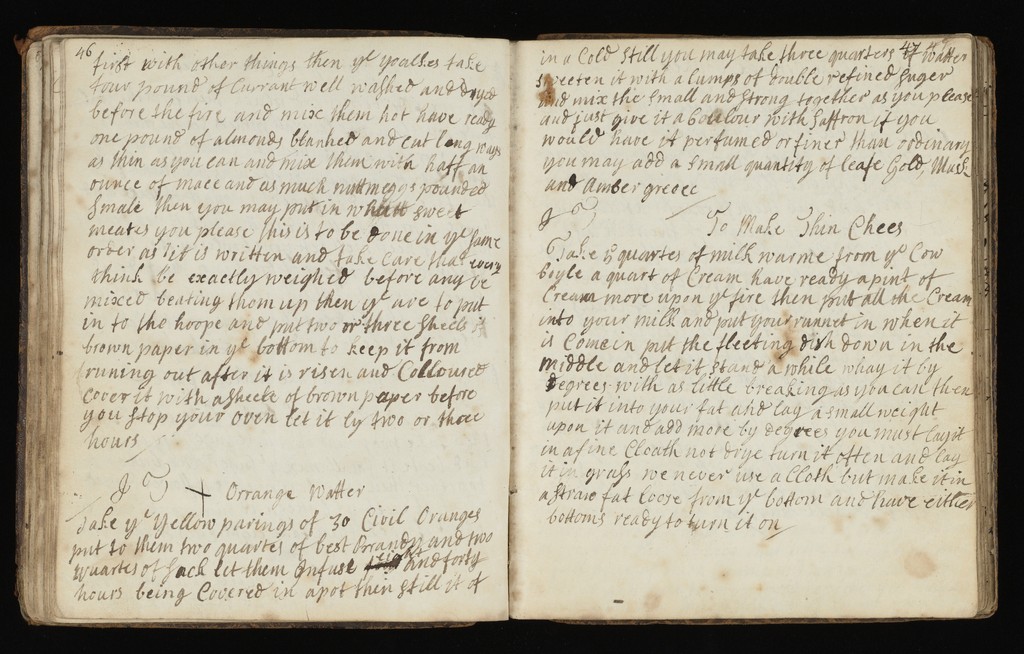 46
first with other things then ye yoalkes take
four pound of Currant well washed and dryed
before the fire and mix them hot have ready
one pound of almonds blanched and cut long ways
as thin as you can and mix them with haff an
ounce of mace and as much nuttmeggs pounded
smale then you may put in what sweet
meates you please this is to be done in ye same
order as it is written and take care that every
think be exactly weighed before any be
mixed beating them up then ye are to put
in to the hoope and put two or three sheets
brown paper in ye bottom to keep it from
runing out after it is risen and Colloured
cover it with a sheete of brown paper before
you stop your oven let it ly two or three
hours
J T + Orrange Watter
Take ye yellow parings of 30 Civil Oranges
put to them two quartes of best Brrandy and two
quartes of Sack let them infuse eight and forty
hours being Covered in a pot then still it of
47
in a Cold still you may take three quarters of watter
sweeten it with a Lumps of double refined suger
and mix the small and strong together as you please
and just give it a Coulour with saffron if you
would have it perfumed or finer than ordinary
you may add a small quantity of leafe Gold, Musk
and Ambergreece
J T
To Make Thin Chees
Take 5 quartes of milk warme from ye Cow
boyle a quart of Cream have ready a pint of
Cream more upon ye fire then put all the Cream
into your milk and put your runnet in when it
is Come in put the fleeting dish down in the
middle and let it stand a while whay it by
degrees with as litle breaking as you can then
put it into your fat and lay a small weight
upon it and add more by degrees you must lay it
in a fine Cloath not drye turn it often and lay
it in grass we never use a Cloth but make it in
a straw fat loose from ye bottom and have either
bottoms ready to turn it on